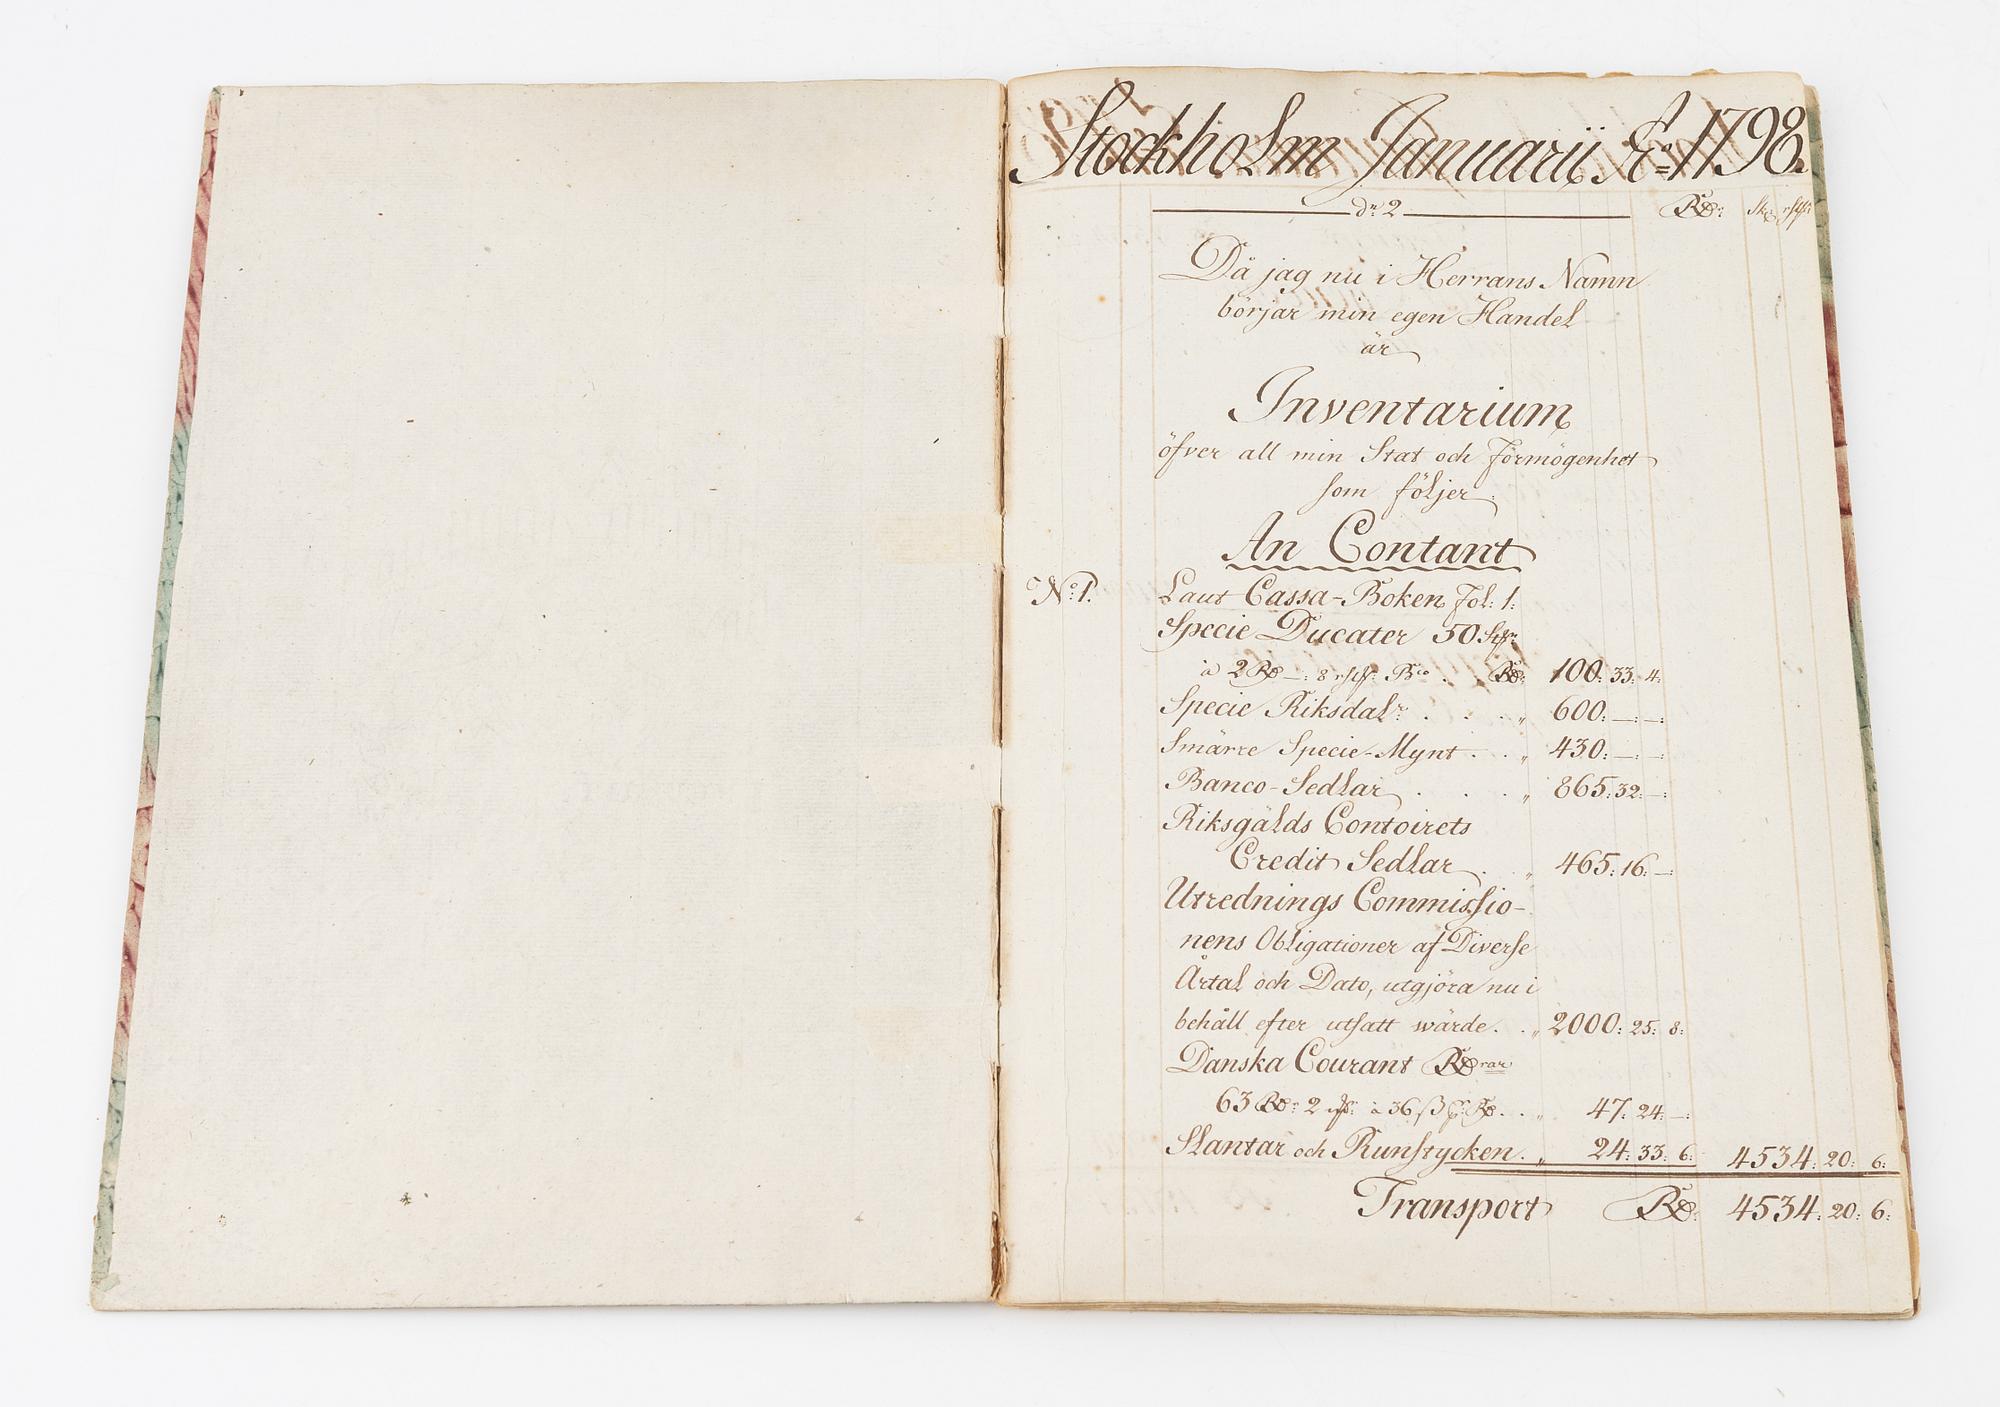 Stockholm Januarii Ao 1798.
dn 2 Rd: Sk: rst:
Då jag nu i Herrans Namn
börjar min egen Handel
är
Inventarium
öfver all min Stat och Förmögenhet
som följer
An Contant
No: 1. Laut Cassa-Boken Fol: 1:
Specie Ducater 50 St:
à 2 Rd —: 8 rst: Bco . . Rd: 100: 33: 4:
Specie Riksdalr: . . . " 600: —: —:
Smärre Specie-Mynt . . " 430: —: —:
Banco-Sedlar . . . " 865: 32: —:
Riksgälds Contoirets
Credit Sedlar . . " 465: 16: —:
Utrednings Commissio-
nens Obligationer af Diverse
Årtal och Dato, utgjöra nu i
behåll efter utsatt wärde . . " 2000: 25: 8:
Danska Courant Rdrar
63 Rd: 2 à 36 ß Rd. . . " 47: 24: —:
Slantar och Runstycken . " 24: 33: 6: 4534: 20: 6:
Transport Rd: 4534: 20: 6: